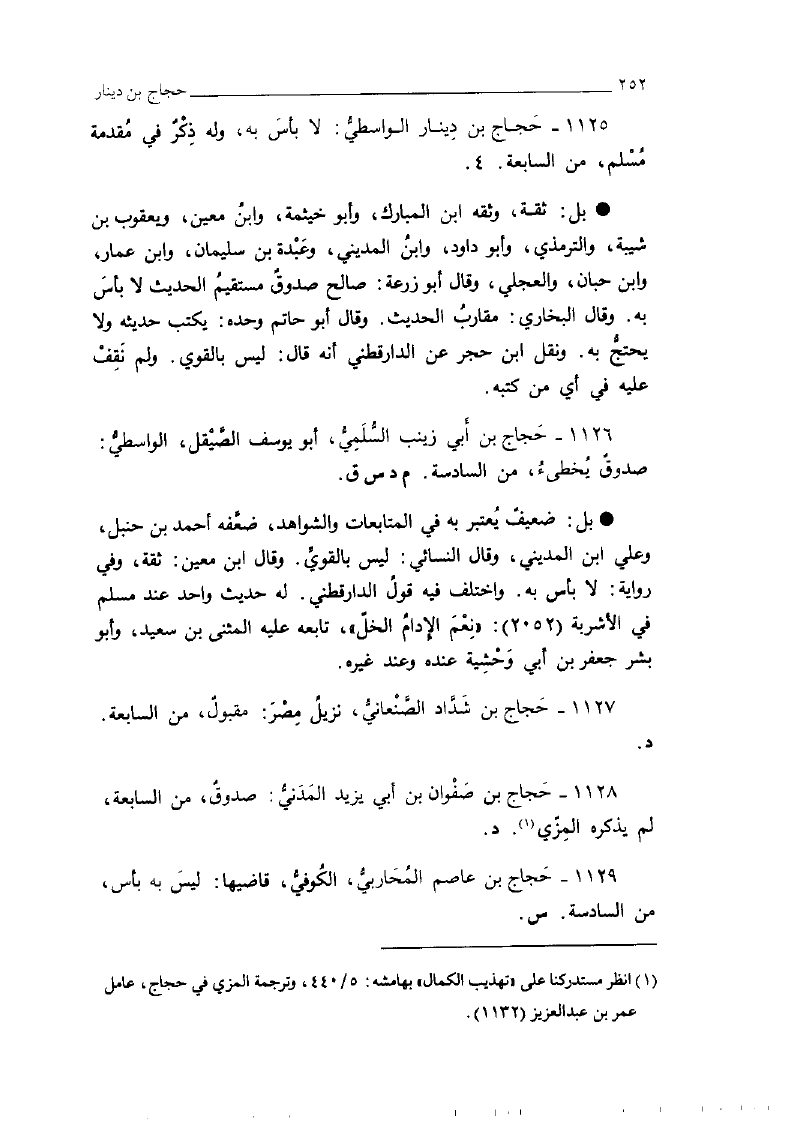 ٢٥٢ حجاج بن دينار
١١٢٥ ـ حَجـاج بن دِينـار الـواسطيُّ: لا بأسَ به، وله ذِكْرٌ في مُقدمة
مُسْلم، من السابعة. ٤.
● بل: ثقـة، وثقه ابن المبارك، وأبو خيثمة، وابنُ معين، ويعقوب بن
شيبة، والترمذي، وأبو داود، وابنُ المديني، وعَبْدة بن سليمان، وابن عمار،
وابن حبان، والعجلي، وقال أبو زرعة: صالح صدوقٌ مستقيمُ الحديث لا بأسَ
به. وقال البخاري: مقاربُ الحديث. وقال أبو حاتم وحده: يكتب حديثه ولا
يحتجُّ به. ونقل ابن حجر عن الدارقطني أنه قال: ليس بالقوي. ولم نَقِفْ
عليه في أي من كتبه.
١١٢٦ ـ حَجاج بن أبي زينب السُّلَمِيُّ، أبو يوسف الصَّيْقل، الواسطيُّ:
صدوقٌ يُخطىءُ، من السادسة. م د س ق.
● بل: ضعيفٌ يُعتبر به في المتابعات والشواهد، ضعَّفه أحمد بن حنبل،
وعلي ابن المديني، وقال النسائي: ليس بالقويِّ. وقال ابن معين: ثقة، وفي
رواية: لا بأس به. واختلف فيه قولُ الدارقطني. له حديث واحد عند مسلم
في الأشربة (٢٠٥٢): «نِعْمَ الإدامُ الخلّ»، تابعه عليه المثنى بن سعيد، وأبو
بشر جعفر بن أبي وَحْشِية عنده وعند غيره.
١١٢٧ ـ حَجاج بن شَدَّاد الصَّنْعانيُّ، نزيلُ مِصْرَ: مقبولٌ، من السابعة.
د.
١١٢٨ ـ حَجاج بن صَفْوان بن أبي يزيد المَدَنيُّ: صدوقٌ، من السابعة،
لم يذكره المِزّي(١). د.
١١٢٩ ـ حَجاج بن عاصم المُحَاربيُّ، الكُوفيُّ، قاضيها: ليسَ به بأس،
من السادسة. س.
(١) انظر مستدركنا على «تهذيب الكمال» بهامشه: ٥/ ٤٤٠، وترجمة المزي في حجاج، عامل
عمر بن عبدالعزيز (١١٣٢).